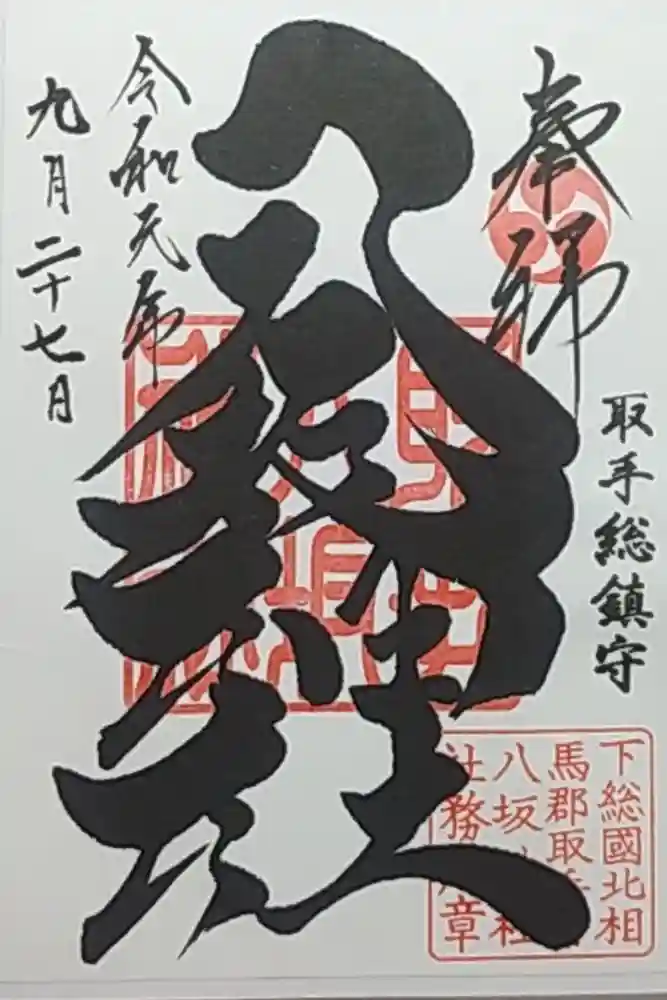 奉拝
取手総鎮守
八坂神社
令和元年
九月二十七日
下総國北相
馬郡取手
八坂神社
社務所章